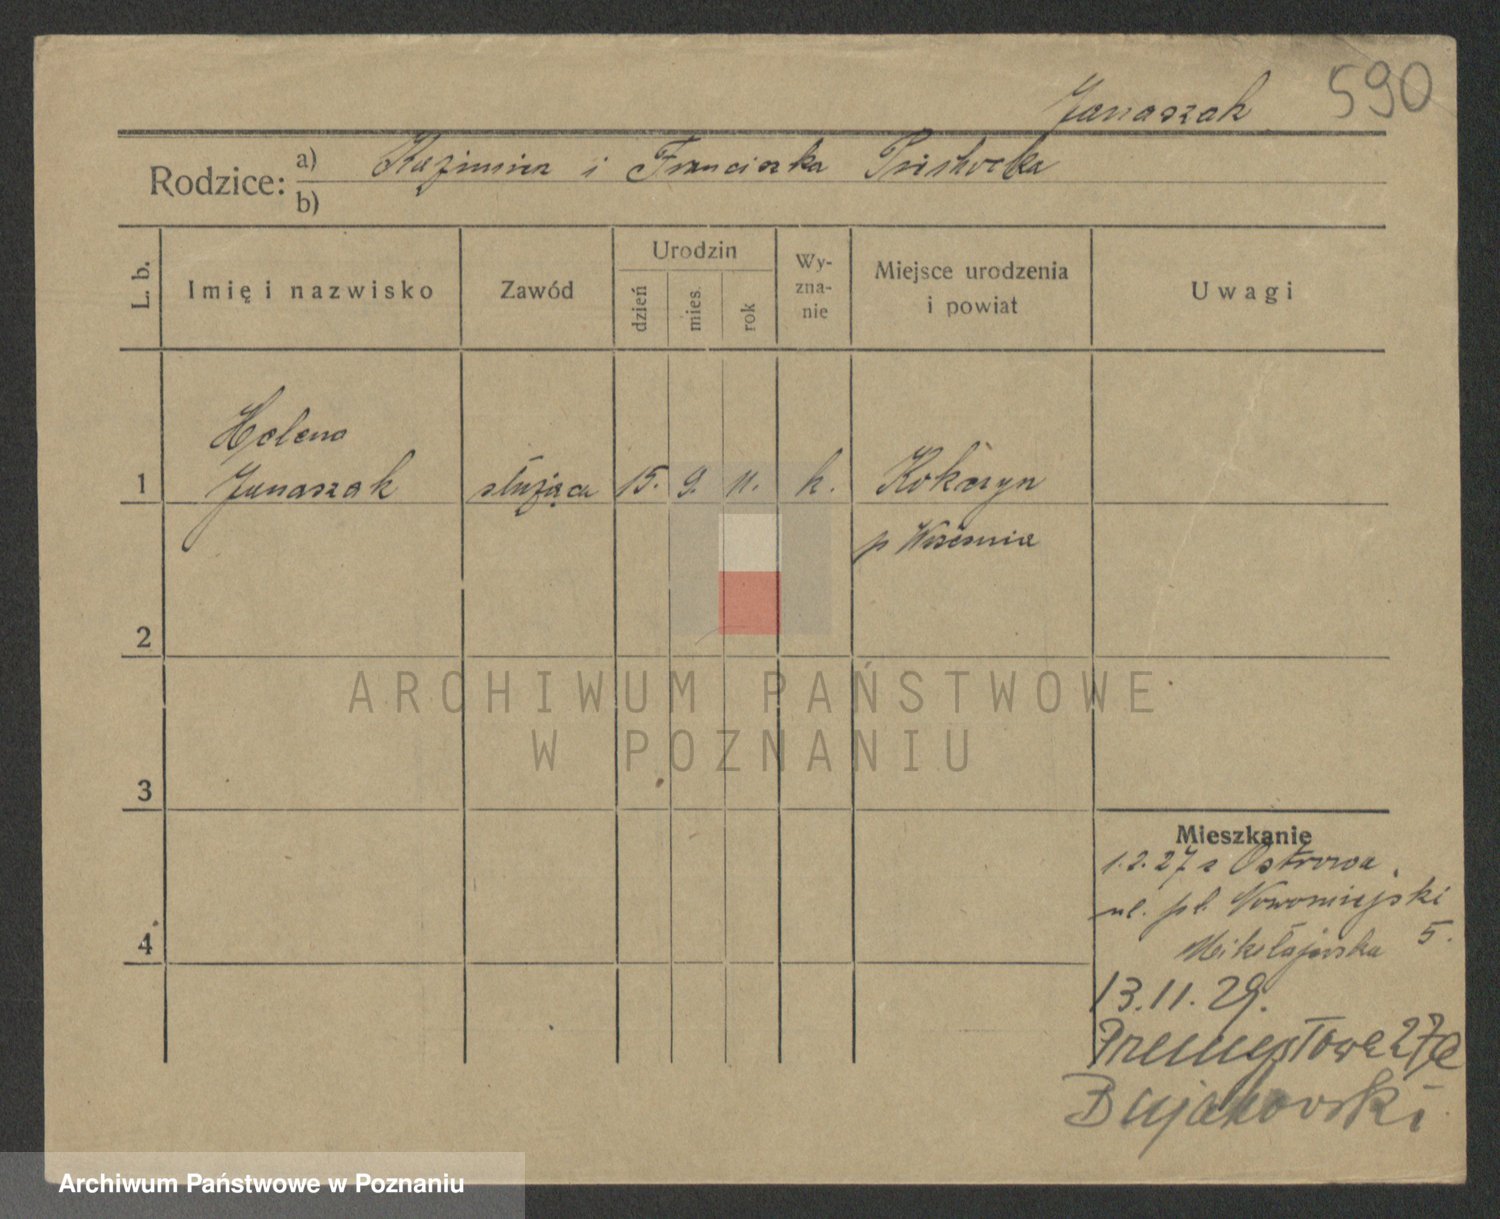 Janaszak 590
Rodzice: a) Kazimierz i Franciszka
b)
L. b. Imię i nazwisko Zawód Urodzin dzień mies. rok Wy-zna-nie Miejsce urodzenia i powiat Uwagi
Helena
1 Janaszak służąca 15. 9. 11. k. Kokczyn
p Września
2
3
4
ARCHIWUM PAŃSTWOWE
W POZNANIU
Mieszkanie
1.2.27 z Ostrowa
ul. pl. Nowomiejski 5.
Mikołajewska
13.11.29.
Przemysłowa 27a
Bujakowski
Archiwum Państwowe w Poznaniu